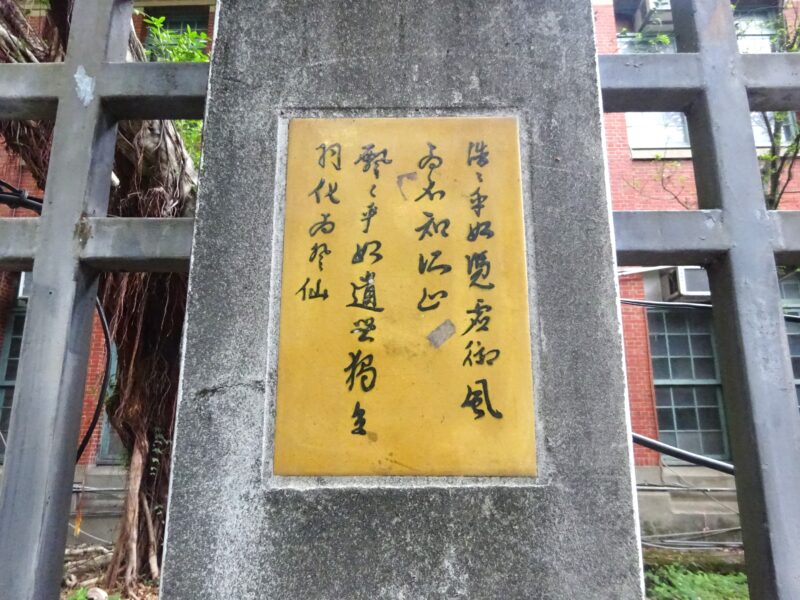 浩々乎如憑虛御風
而不知所止
飄々乎如遺世獨立
羽化而登仙